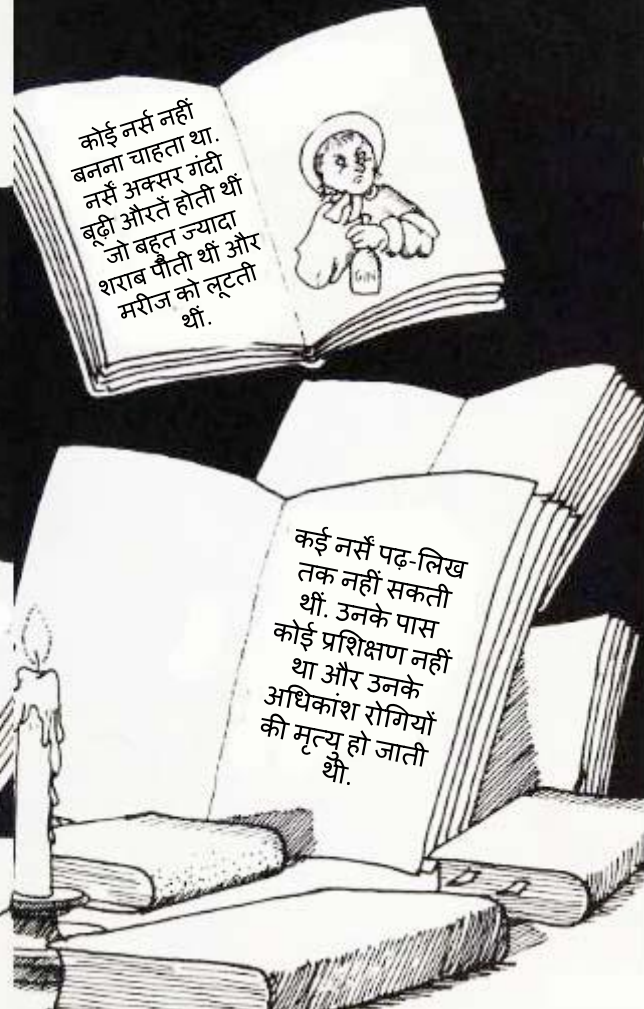 कोई नर्स नहीं
बनना चाहता था.
नर्सें अक्सर गंदी
बूढ़ी औरतें होती थीं
जो बहुत ज्यादा
शराब पीती थीं और
मरीज को लूटती
थीं.
GIN
कई नर्सें पढ़-लिख
तक नहीं सकती
थीं. उनके पास
कोई प्रशिक्षण नहीं
था और उनके
अधिकांश रोगियों
की मृत्यु हो जाती
थी.